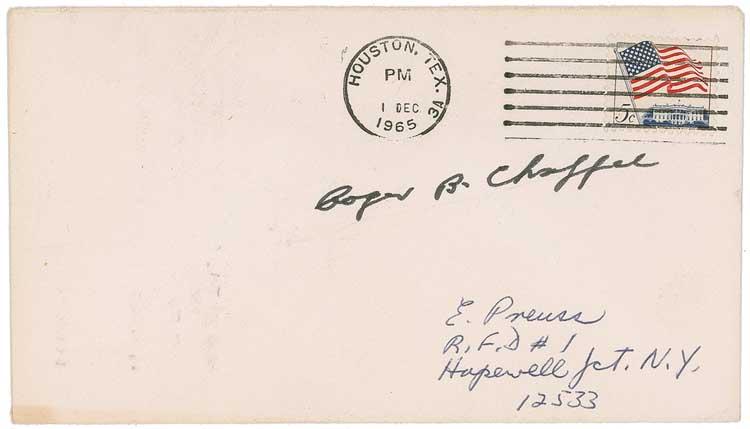 HOUSTON, TEX. 3A
PM
1 DEC
1965
5c
Roger B. Chaffee
E. Preuss
R.F.D # 1
Hopewell Jct. N.Y.
12533